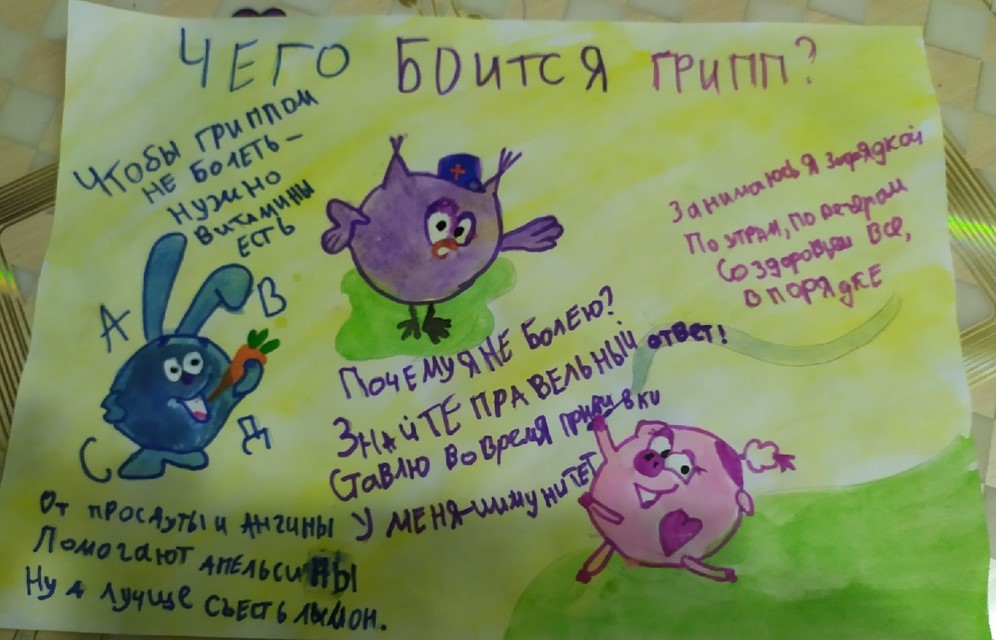 ЧЕГО БОИТСЯ ГРИПП?
Чтобы гриппом
не болеть –
нужно
витамины
есть
А В
С Д
От просдуты и ангины
Помогают апельсины
Ну а лучще съесть лимон.
Почему я не болею?
Знайте правельный ответ!
Ставлю вовремя прививки
У меня-иммунитет
Занимаюсь я зарядкой
По утрам, по вечерам
Со здоровьем все,
в порядке